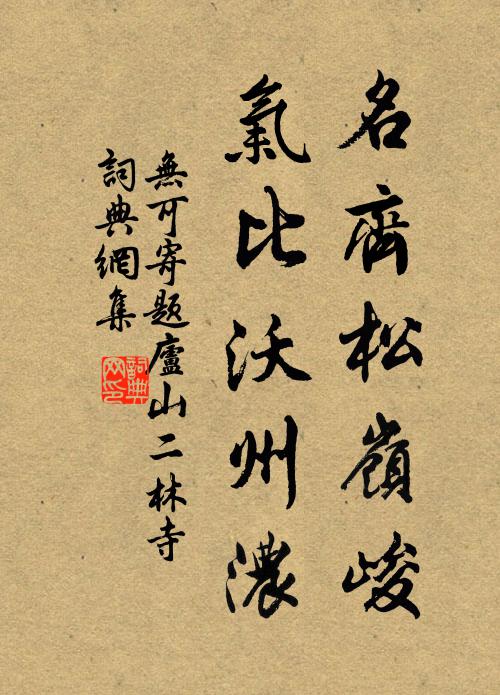 名齊松嶺峻
氣比沃州濃
無可寄題廬山二林寺
詞典網集
詞典网印